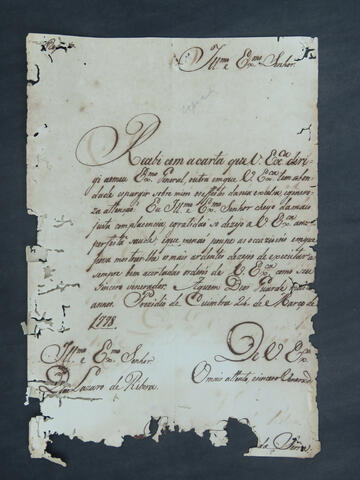 Ill.mo e Ex.mo Senhor.
Recebi com a carta que V. Ex.ca derigi
gi ameu Ex.mo General, outra emque V. Ex.ca tem abon
dade espargir sobre mim os effeitos da sua excelsa, egenero
za attensaõ. Eu Ill.mo e Ex.mo Senhor chejo da mais
justa complacencia, egratidaõ só dezejo a V. Ex.ca
perfeita saude, eque menaõ poupe as occazioens emque
possa mostrar lhe o mais ardente dezejo de executar as
sempre bem acertadas ordens de V. Ex.ca como seu
sincero venerador. Aquem Deos Guarde
annos. Prezidio de Coimbra 24 de Março de
1798.
Ill.mo e Ex.mo Senhor
Dom Lazaro de Ribera
De V. Ex.
O mais attento, esincero Venerador
da